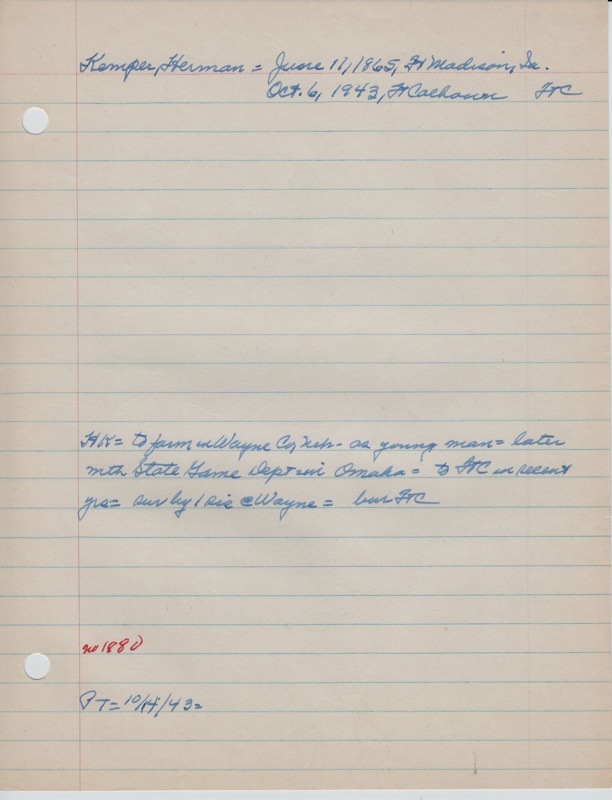 Kemper, Herman = June 11, 1865, Ft Madison, Ia.
Oct. 6, 1943, Ft Calhoun FtC
HK = to farm in Wayne Co, Neb - as young man = later
with State Game Dept in Omaha = to FtC in recent
yrs = sur by 1 sis @ Wayne = bur FtC
no 1880
PT = 10/14/43 =